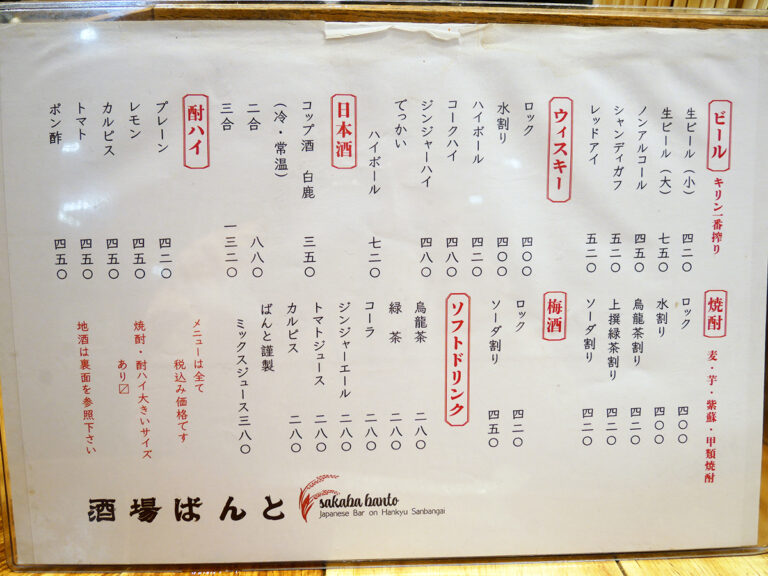 ビール キリン一番搾り
生ビール（小） 四二〇
生ビール（大） 七五〇
ノンアルコール 四五〇
シャンディガフ 五二〇
レッドアイ 五二〇
ウィスキー
ロック 四〇〇
水割り 四〇〇
ハイボール 四二〇
コークハイ 四八〇
ジンジャーハイ 四八〇
でっかい
ハイボール 七二〇
日本酒
コップ酒 白鹿 三五〇
（冷・常温）
二合 八八〇
三合 一三二〇
酎ハイ
プレーン 四二〇
レモン 四五〇
カルピス 四五〇
トマト 四五〇
ポン酢 四五〇
焼酎 麦・芋・紫蘇・甲類焼酎
ロック 四〇〇
水割り 四〇〇
烏龍茶割り 四二〇
上撰緑茶割り 四二〇
ソーダ割り 四二〇
梅酒
ロック 四二〇
ソーダ割り 四五〇
ソフトドリンク
烏龍茶 二八〇
緑茶 二八〇
コーラ 二八〇
ジンジャーエール 二八〇
トマトジュース 二八〇
カルピス 二八〇
ばんと謹製
ミックスジュース三八〇
メニューは全て
税込み価格です
焼酎・酎ハイ大きいサイズ
あり〼
地酒は裏面を参照下さい
酒場ばんと
sakaba banto
Japanese Bar on Hankyu Sanbangai